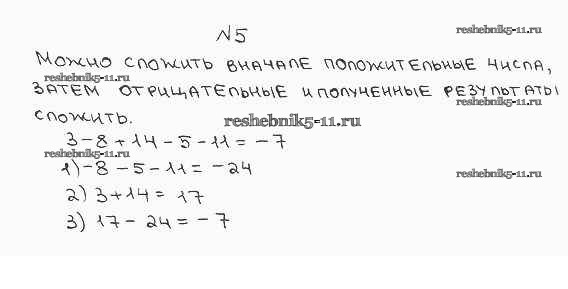 N5
reshebnik5-11.ru
Можно сложить вначале положительные числа,
reshebnik5-11.ru
затем отрицательные и полученные результаты
reshebnik5-11.ru
сложить.
reshebnik5-11.ru
3-8+14-5-11=-7
reshebnik5-11.ru
1) -8-5-11=-24
reshebnik5-11.ru
2) 3+14=17
3) 17-24=-7